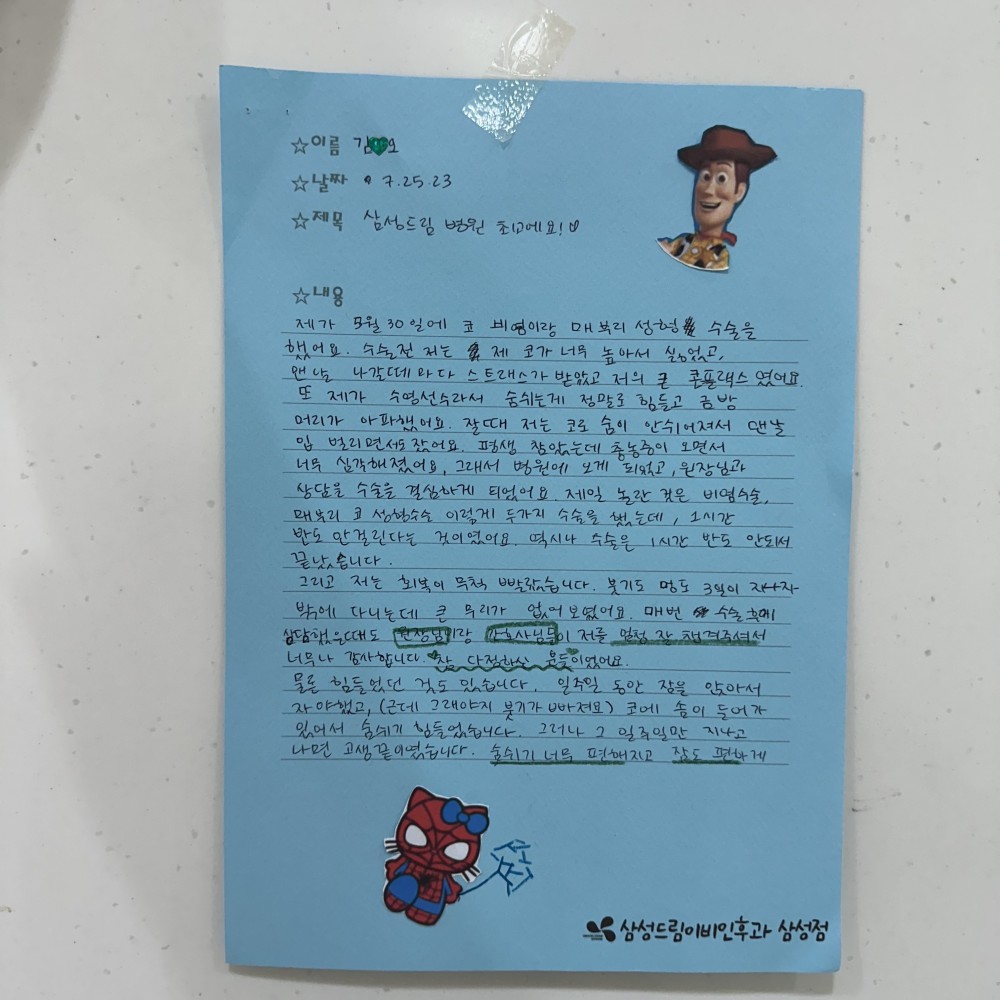 ☆이름 김 소
☆날짜 7.25.23
☆제목 삼성드림 병원 최고에요!♡
☆내용
제가 5월 30일에 코 비염이랑 매부리 성형 수술을
했어요. 수술전 저는 제 코가 너무 높아서 싫었고,
맨날 나갈때 마다 스트래스가 받았고 저의 큰 콤플래스 였어요.
또 제가 수영선수라서 숨쉬는게 정말로 힘들고 금방
머리가 아파했어요. 잘때 저는 코로 숨이 안쉬어져서 맨날
입 벌리면서도 잤어요. 평생 참았는데 축농증이 오면서
너무 심각해졌어요, 그래서 병원에 오게 되었고, 원장님과
상담을 수술을 결심하게 되었어요. 제일 놀란 것은 비염수술,
매부리 코 성형수술 이렇게 두가지 수술을 했는데, 1시간
반도 안걸린다는 것이였어요. 역시나 수술은 1시간 반도 안되서
끝났습니다.
그리고 저는 회복이 무척 빨랐습니다. 붓기도 멍도 3일이 지나자
밖에 다니는데 큰 무리가 없어 보였어요. 매번 수술 후에
상담했을때도 원장님이랑 간호사님들이 저를 엄청 잘 챙겨주셔서
너무나 감사합니다. 참 다정하신 분들이였어요.
물론 힘들었던 것도 있습니다. 일주일 동안 잠을 앉아서
자야했고, (근데 그래야지 붓기가 빠져요) 코에 솜이 들어가
있어서 숨쉬기 힘들었습니다. 그러나 그 일주일만 지나고
나면 고생끝이였습니다. 숨쉬기 너무 편해지고 잠도 편하게
삼성드림이비인후과 삼성점